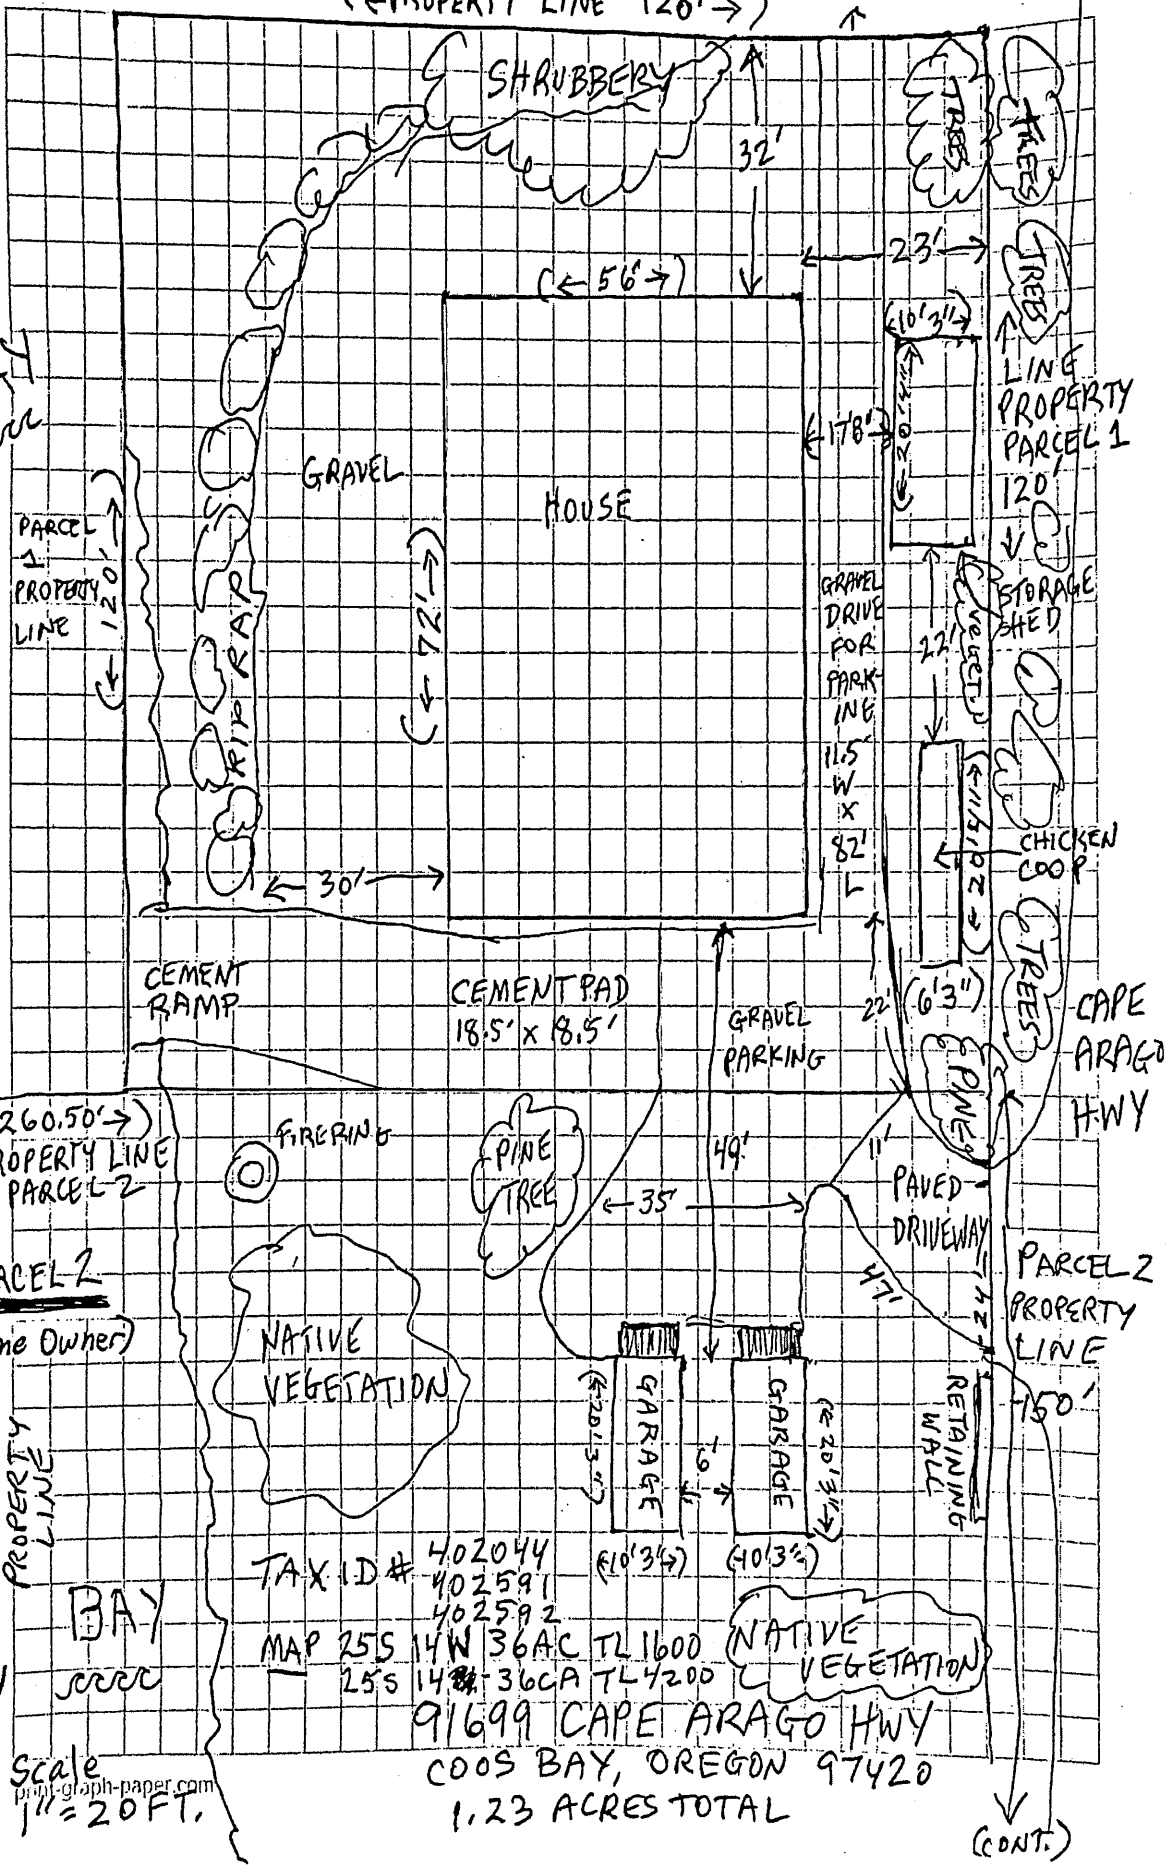 (←PROPERTY LINE 120'→)
SHRUBBERY
TREES
TREES
32'
23'
TREES
(←56'→)
(10'3")
LINE
PROPERTY
PARCEL 1
120'
(←20'3"→)
(17'8")
GRAVEL
HOUSE
PARCEL
1
PROPERTY
LINE
←120'→)
(←72'→)
RIP RAP
GRAVEL
DRIVE
FOR
PARK-
INE
11.5'
W
X
82'
L
22'
VEGET.
STORAGE
SHED
CHICKEN
COOP
←30'→
TREES
CEMENT
RAMP
CEMENT PAD
18.5' X 18.5'
GRAVEL
PARKING
22'
(6'3")
CAPE
ARAGO
HWY
PINE
260.50'→)
PROPERTY LINE
PARCEL 2
FIRERING
PINE
TREE
49'
11'
←35'→
PAVED
DRIVEWAY
47'
24'
PARCEL 2
PROPERTY
LINE
150'
ARCEL 2
me Owner)
NATIVE
VEGETATION
GARAGE
(←20'3"→)
6'
GARAGE
(←20'3"→)
RETAINING
WALL
PROPERTY
LINE
(←10'3"→)
(←10'3"→)
TAX ID# 402044
402591
402592
BAY
MAP 25S 14W 36AC TL 1600
25S 14 36CA TL 4200
NATIVE
VEGETATION
91699 CAPE ARAGO HWY
COOS BAY, OREGON 97420
1.23 ACRES TOTAL
Scale
print-graph-paper.com
1"=20FT.
(CONT.)